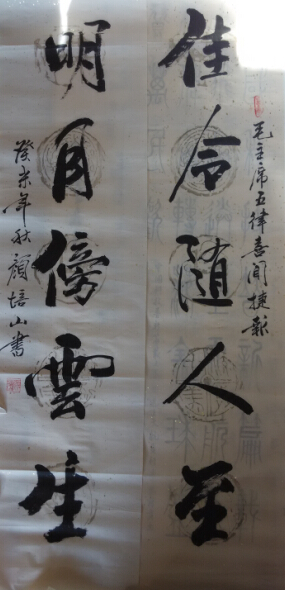 毛主席五律喜闻捷報
佳令隨人至
明月傍雲生
癸未年秋顏培山書